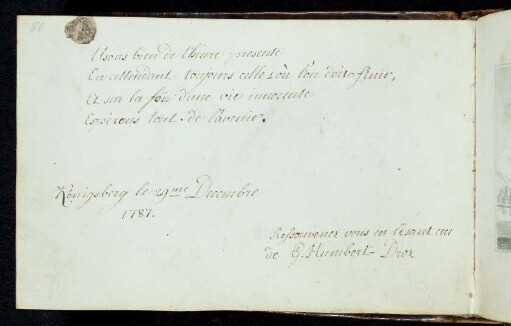 86
Usons bien de l'heure presente
En attendant toujours celle où l'on doit finir,
Et sur la foi d'une vie innocente
Esperons tout de l'avenir.
Königsberg le 29me Decembre
1787.
Ressouvenez vous en lisant ceci
de G. Humbert-Droz